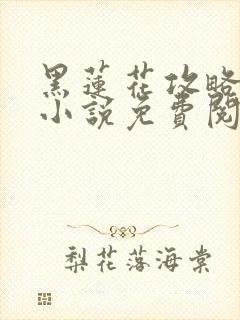 黑蓮花攻略
小說免費閱
梨花落海棠